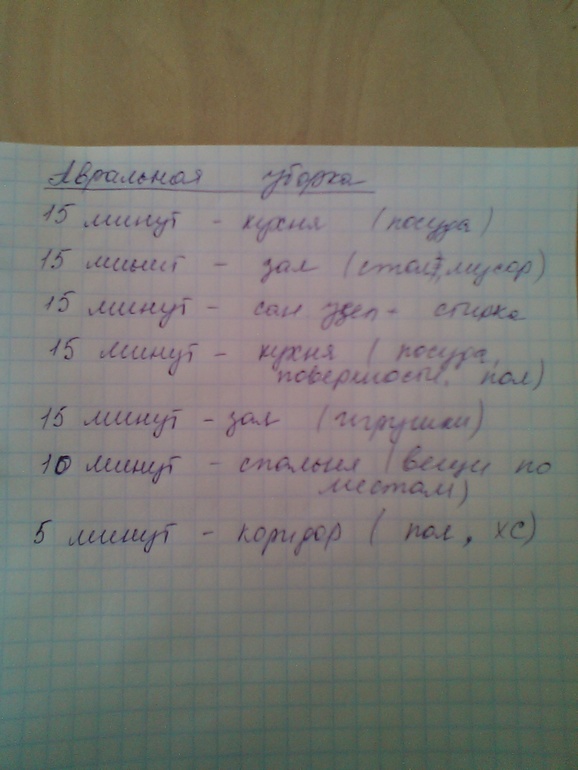 Авральная уборка
15 минут - кухня (посуда)
15 минут - зал (стол, мусор)
15 минут - сан узел - стирка
15 минут - кухня (посуда,
поверхности, пол)
15 минут - зал (игрушки)
10 минут - спальня (вещи по
местам)
5 минут - коридор (пол, хс)